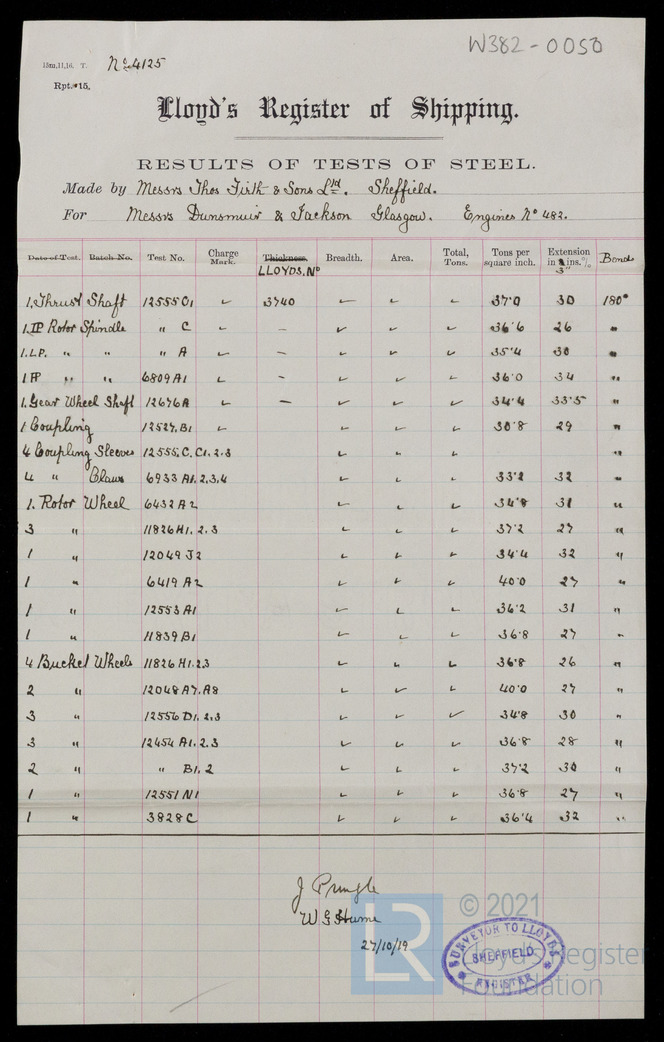 W382-0050
15m,11,16. T. No 4125
Rpt. 15.
Lloyd's Register of Shipping.
RESULTS OF TESTS OF STEEL.
Made by Messrs Thos Firth & Sons Ltd. Sheffield.
For Messrs Dunsmuir & Jackson Glasgow. Engines No 482.
Date of Test. Batch No. Test No. Charge Mark. Thickness. LLOYDS. No Breadth. Area. Total, Tons. Tons per square inch. Extension in 3" ins. % Bends
1. Thrust Shaft 12555 C1 ✓ 3740 ✓ ✓ ✓ 37.0 30 180°
1. IP Rotor Spindle " C ✓ - ✓ ✓ ✓ 36.6 26 "
1. L.P. " " " A ✓ - ✓ ✓ ✓ 35.4 30 "
1 HP " " 6809 A1 ✓ - ✓ ✓ ✓ 36.0 34 "
1. Gear Wheel Shaft 12676A ✓ - ✓ ✓ ✓ 34.4 33.5 "
1 Coupling 12527. B1 ✓ ✓ ✓ ✓ 30.8 29 "
4 Coupling Sleeves 12555. C. C1. 2.3 ✓ " " "
4 " Claws 6933 A1. 2,3,4 ✓ ✓ ✓ 33.2 32 "
1. Rotor Wheel 6432 A2 ✓ ✓ ✓ 34.8 31 "
3 " 11826 H1. 2.3 ✓ ✓ ✓ 37.2 27 "
1 " 12049 J2 ✓ ✓ ✓ 34.4 32 "
1 " 6419 A2 ✓ ✓ ✓ 40.0 27 "
1 " 12553 A1 ✓ ✓ ✓ 36.2 31 "
1 " 11839 B1 ✓ ✓ ✓ 36.8 27 "
4 Bucket Wheels 11826 H1. 2.3 ✓ ✓ ✓ 36.8 26 "
2 " 12048 A7. A8 ✓ ✓ ✓ 40.0 27 "
3 " 12556 D1. 2.3 ✓ ✓ ✓ 34.8 30 "
3 " 12454 A1. 2.3 ✓ ✓ ✓ 36.8 28 "
2 " " B1. 2 ✓ ✓ ✓ 37.2 30 "
1 " 12551 N1 ✓ ✓ ✓ 36.8 27 "
1 " 3828 C ✓ ✓ ✓ 36.4 32 "
J Pringle
W G Hume
27/10/19
SURVEYOR TO LLOYDS
SHEFFIELD
REGISTER
LR
© 2021
Lloyd's Register
Foundation